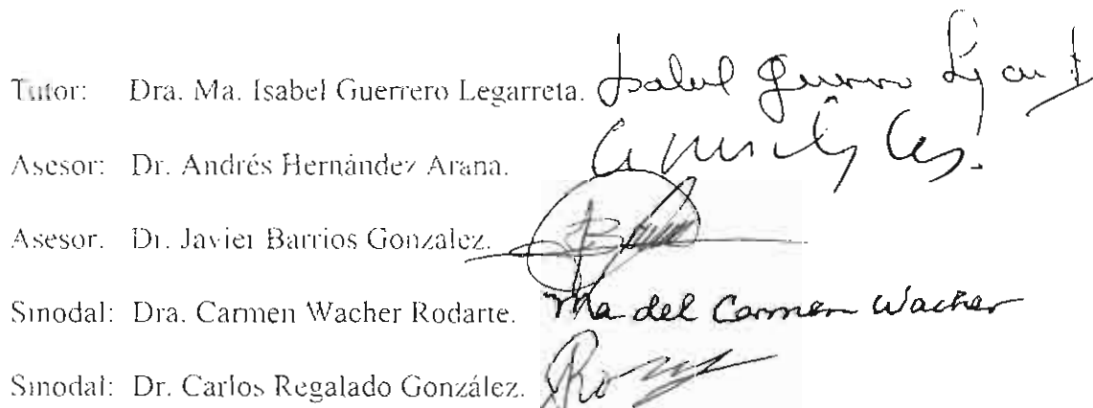 Tutor: Dra. Ma. Isabel Guerrero Legarreta. Isabel
Asesor: Dr. Andrés Hernández Arana.
Asesor. Dr. Javier Barrios Gonzalez.
Sinodal: Dra. Carmen Wacher Rodarte. Ma del Carmen Wacher
Sinodal: Dr. Carlos Regalado González.